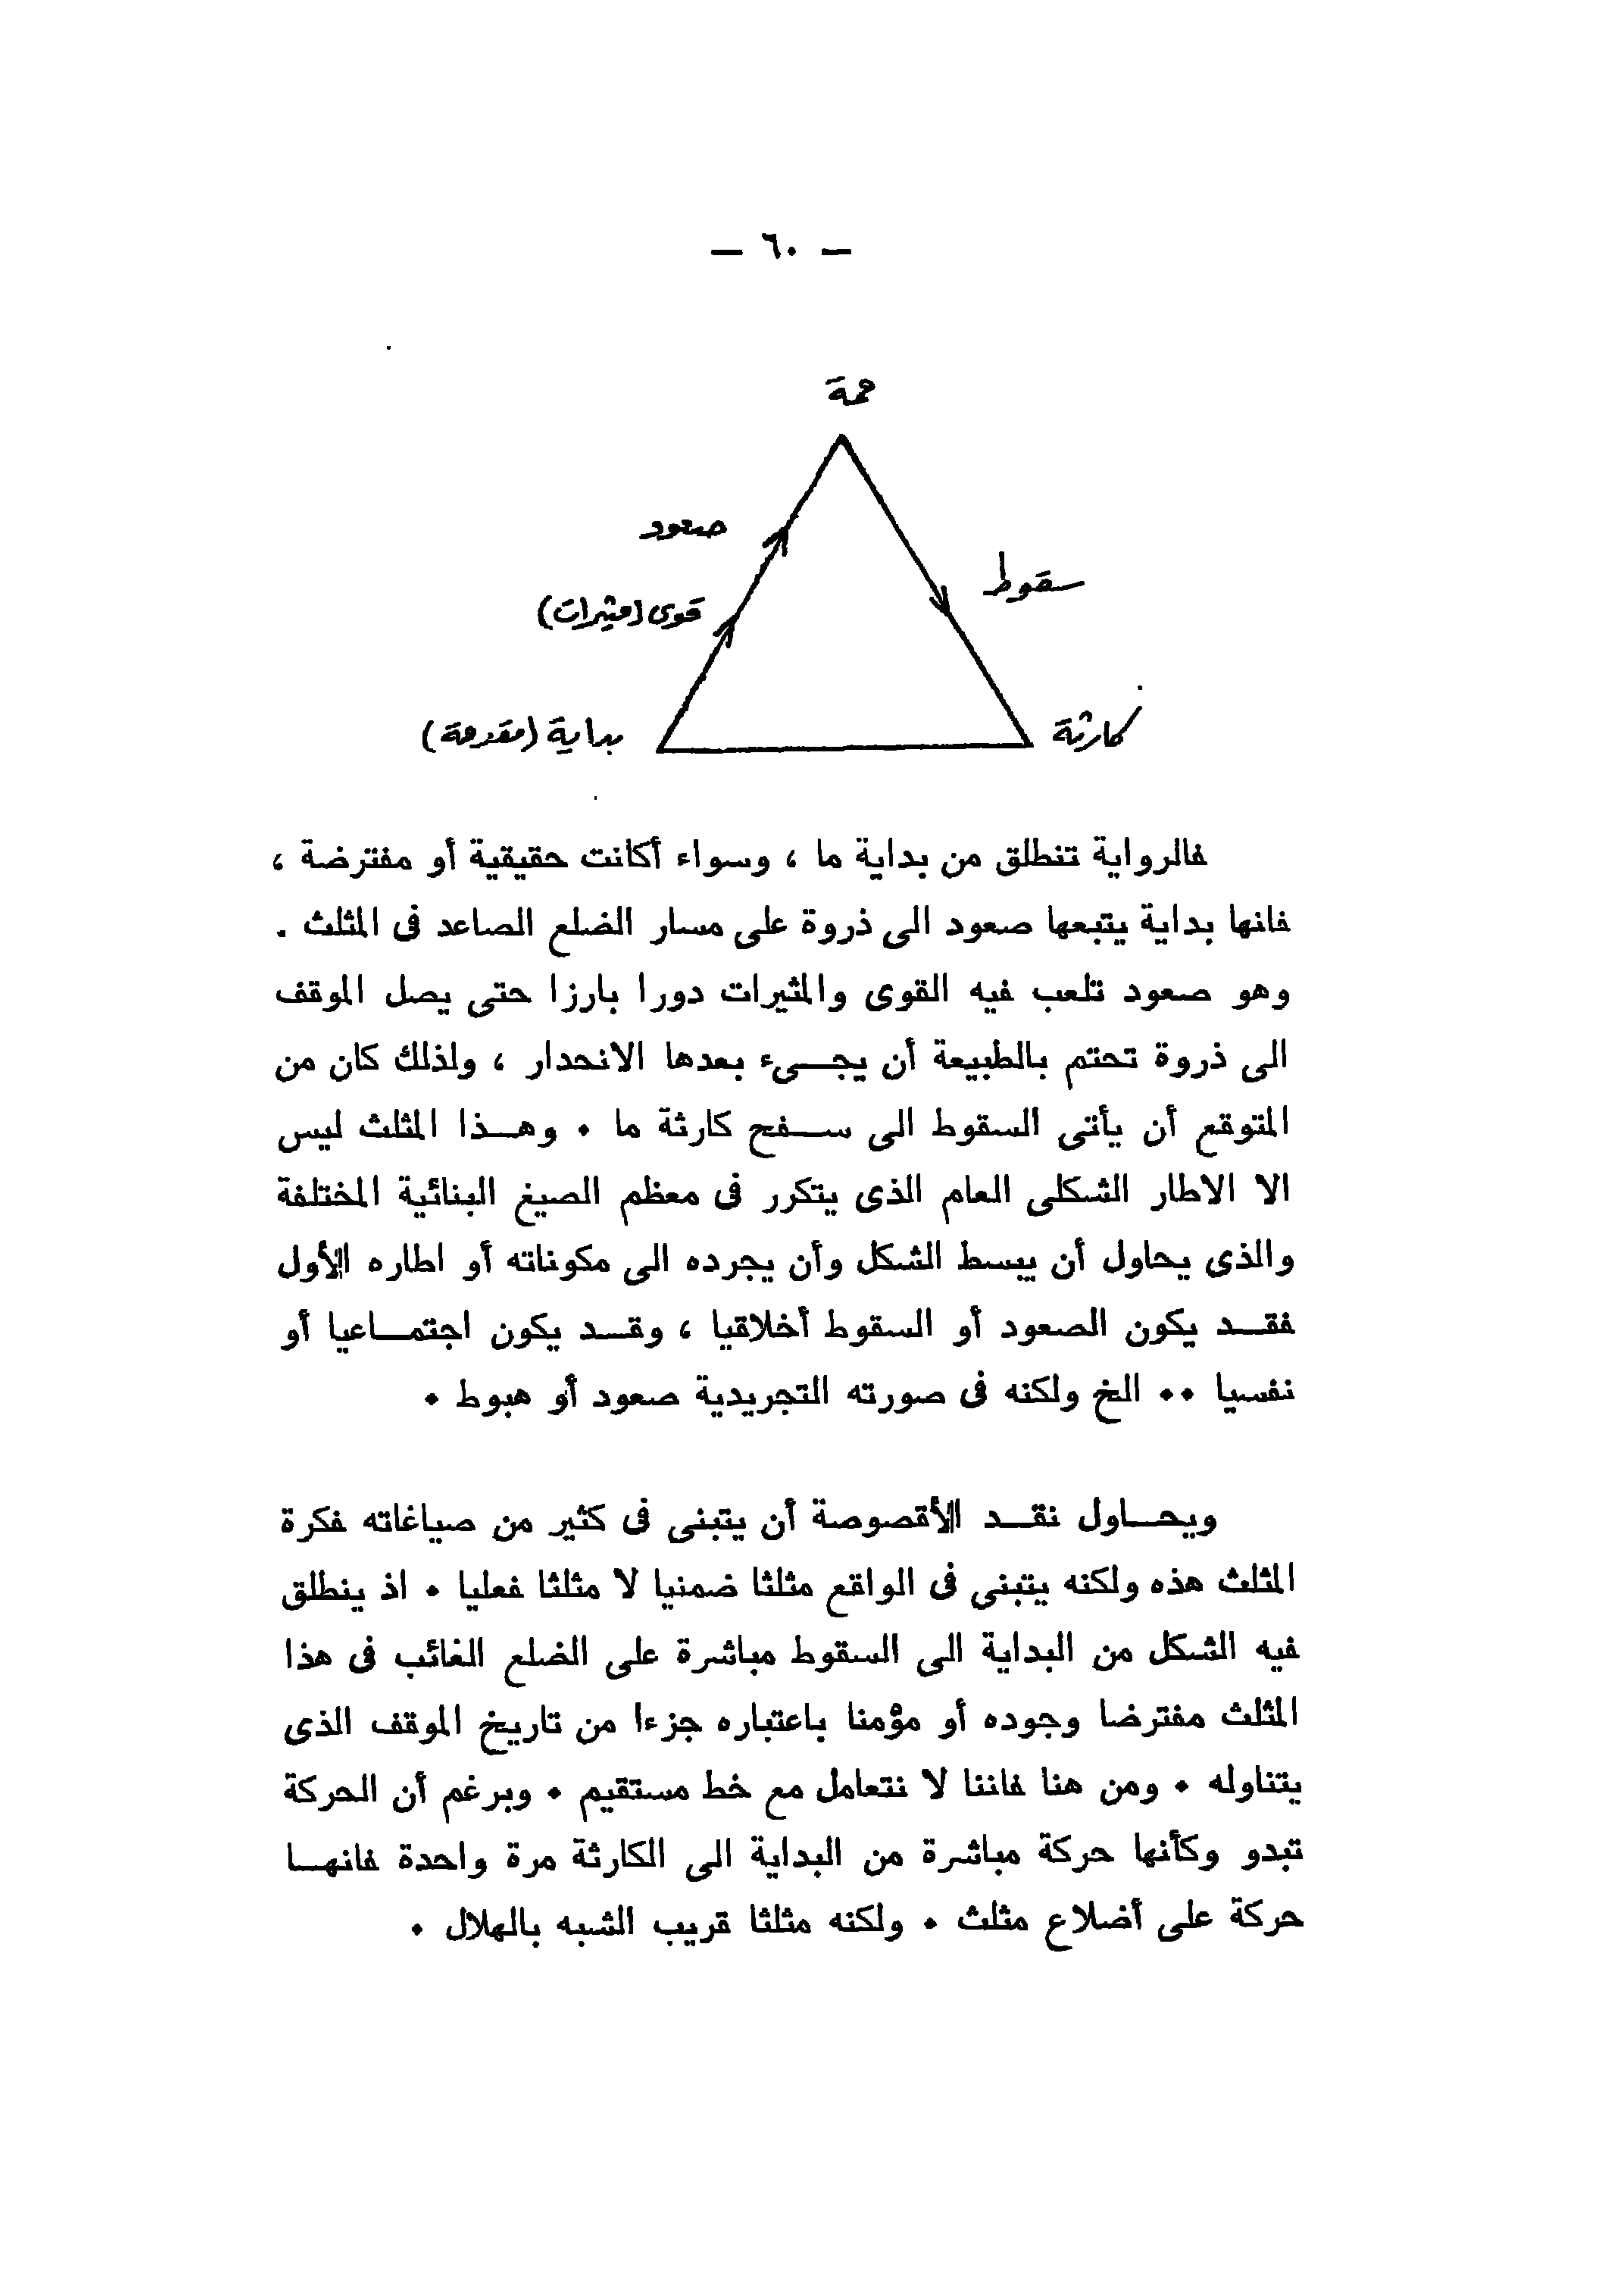 — ٦٠ —
قمة
صعود
سقوط
قوى (مثيرات)
بداية (مقدمة)
كارثة
فالرواية تنطلق من بداية ما ، وسواء أكانت حقيقية أو مفترضة ،
فانها بداية يتبعها صعود الى ذروة على مسار الضلع الصاعد فى المثلث .
وهو صعود تلعب فيه القوى والمثيرات دورا بارزا حتى يصل الموقف
الى ذروة تحتم بالطبيعة أن يجىء بعدها الانحدار ، ولذلك كان من
المتوقع أن يأتى السقوط الى سفح كارثة ما . وهذا المثلث ليس
الا الاطار الشكلى العام الذى يتكرر فى معظم الصيغ البنائية المختلفة
والذى يحاول أن يبسط الشكل وأن يجرده الى مكوناته أو اطاره الأول
فقد يكون الصعود أو السقوط أخلاقيا ، وقد يكون اجتماعيا أو
نفسيا .. الخ ولكنه فى صورته التجريدية صعود أو هبوط .
ويحاول نقد الأقصوصة أن يتبنى فى كثير من صياغاته فكرة
المثلث هذه ولكنه يتبنى فى الواقع مثلثا ضمنيا لا مثلثا فعليا . اذ ينطلق
فيه الشكل من البداية الى السقوط مباشرة على الضلع الغائب فى هذا
المثلث مفترضا وجوده أو مؤمنا باعتباره جزءا من تاريخ الموقف الذى
يتناوله . ومن هنا فاننا لا نتعامل مع خط مستقيم . وبرغم أن الحركة
تبدو وكأنها حركة مباشرة من البداية الى الكارثة مرة واحدة فانها
حركة على أضلاع مثلث . ولكنه مثلثا قريب الشبه بالهلال .